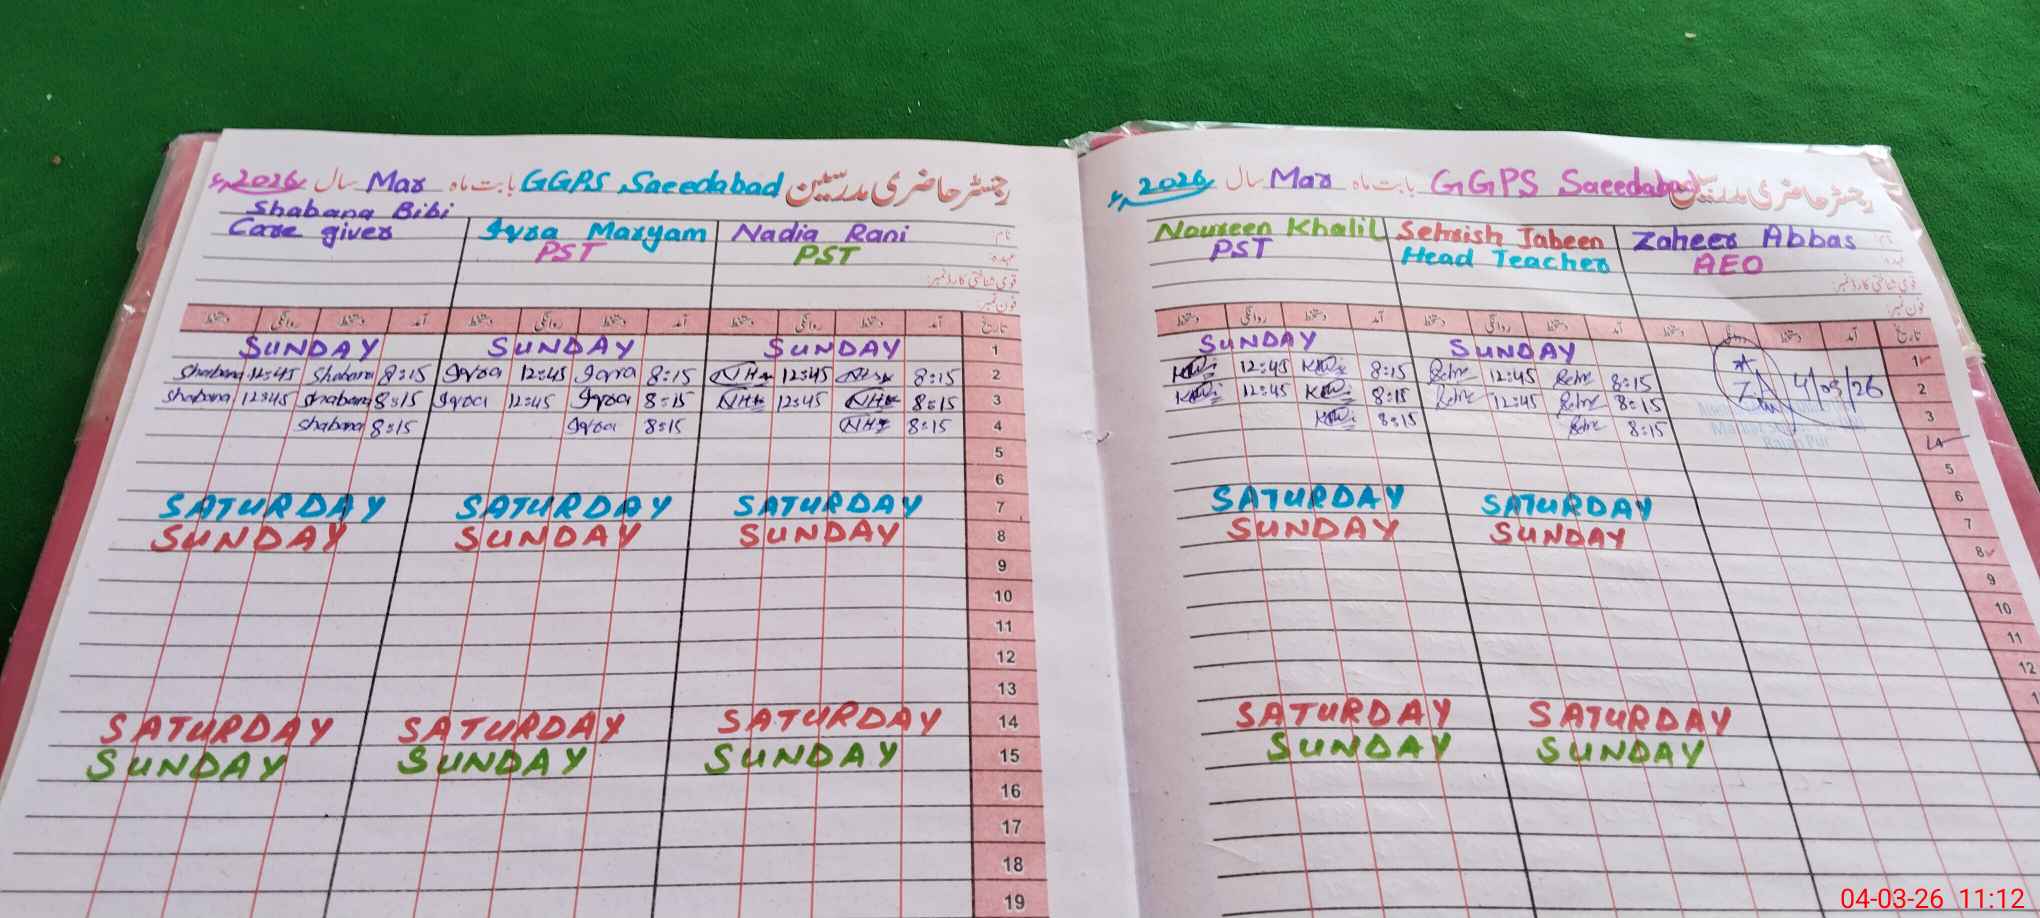 رجسٹر حاضری مدرسین GGPS Saeedabad بابت ماہ Mar سال 2026ء
Shabana Bibi
Care giver Iqra Maryam Nadia Rani نام:
PST PST عہدہ:
قومی شناختی کارڈ نمبر:
فون نمبر:
دستخط روانگی دستخط آمد دستخط روانگی دستخط آمد دستخط روانگی دستخط آمد تاریخ
SUNDAY SUNDAY SUNDAY 1
Shabana 12:45 Shabana 8:15 Iqra 12:45 Iqra 8:15 12:45 8:15 2
Shabana 12:45 Shabana 8:15 Iqra 12:45 Iqra 8:15 12:45 8:15 3
Shabana 8:15 Iqra 8:15 8:15 4
5
6
SATURDAY SATURDAY SATURDAY 7
SUNDAY SUNDAY SUNDAY 8
9
10
11
12
13
SATURDAY SATURDAY SATURDAY 14
SUNDAY SUNDAY SUNDAY 15
16
17
18
19
رجسٹر حاضری مدرسین GGPS Saeedabad بابت ماہ Mar سال 2026ء
Noureen Khalil Sehrish Jabeen Zaheer Abbas
PST Head Teacher AEO عہدہ:
قومی شناختی کارڈ نمبر:
فون نمبر:
دستخط روانگی دستخط آمد دستخط روانگی دستخط آمد دستخط روانگی دستخط آمد تاریخ
SUNDAY SUNDAY 1
12:45 8:15 12:45 8:15 4/03/26 2
12:45 8:15 12:45 8:15 3
8:15 8:15 4
5
SATURDAY SATURDAY 6
SUNDAY SUNDAY 7
8
9
10
11
12
SATURDAY SATURDAY
SUNDAY SUNDAY
04-03-26 11:12